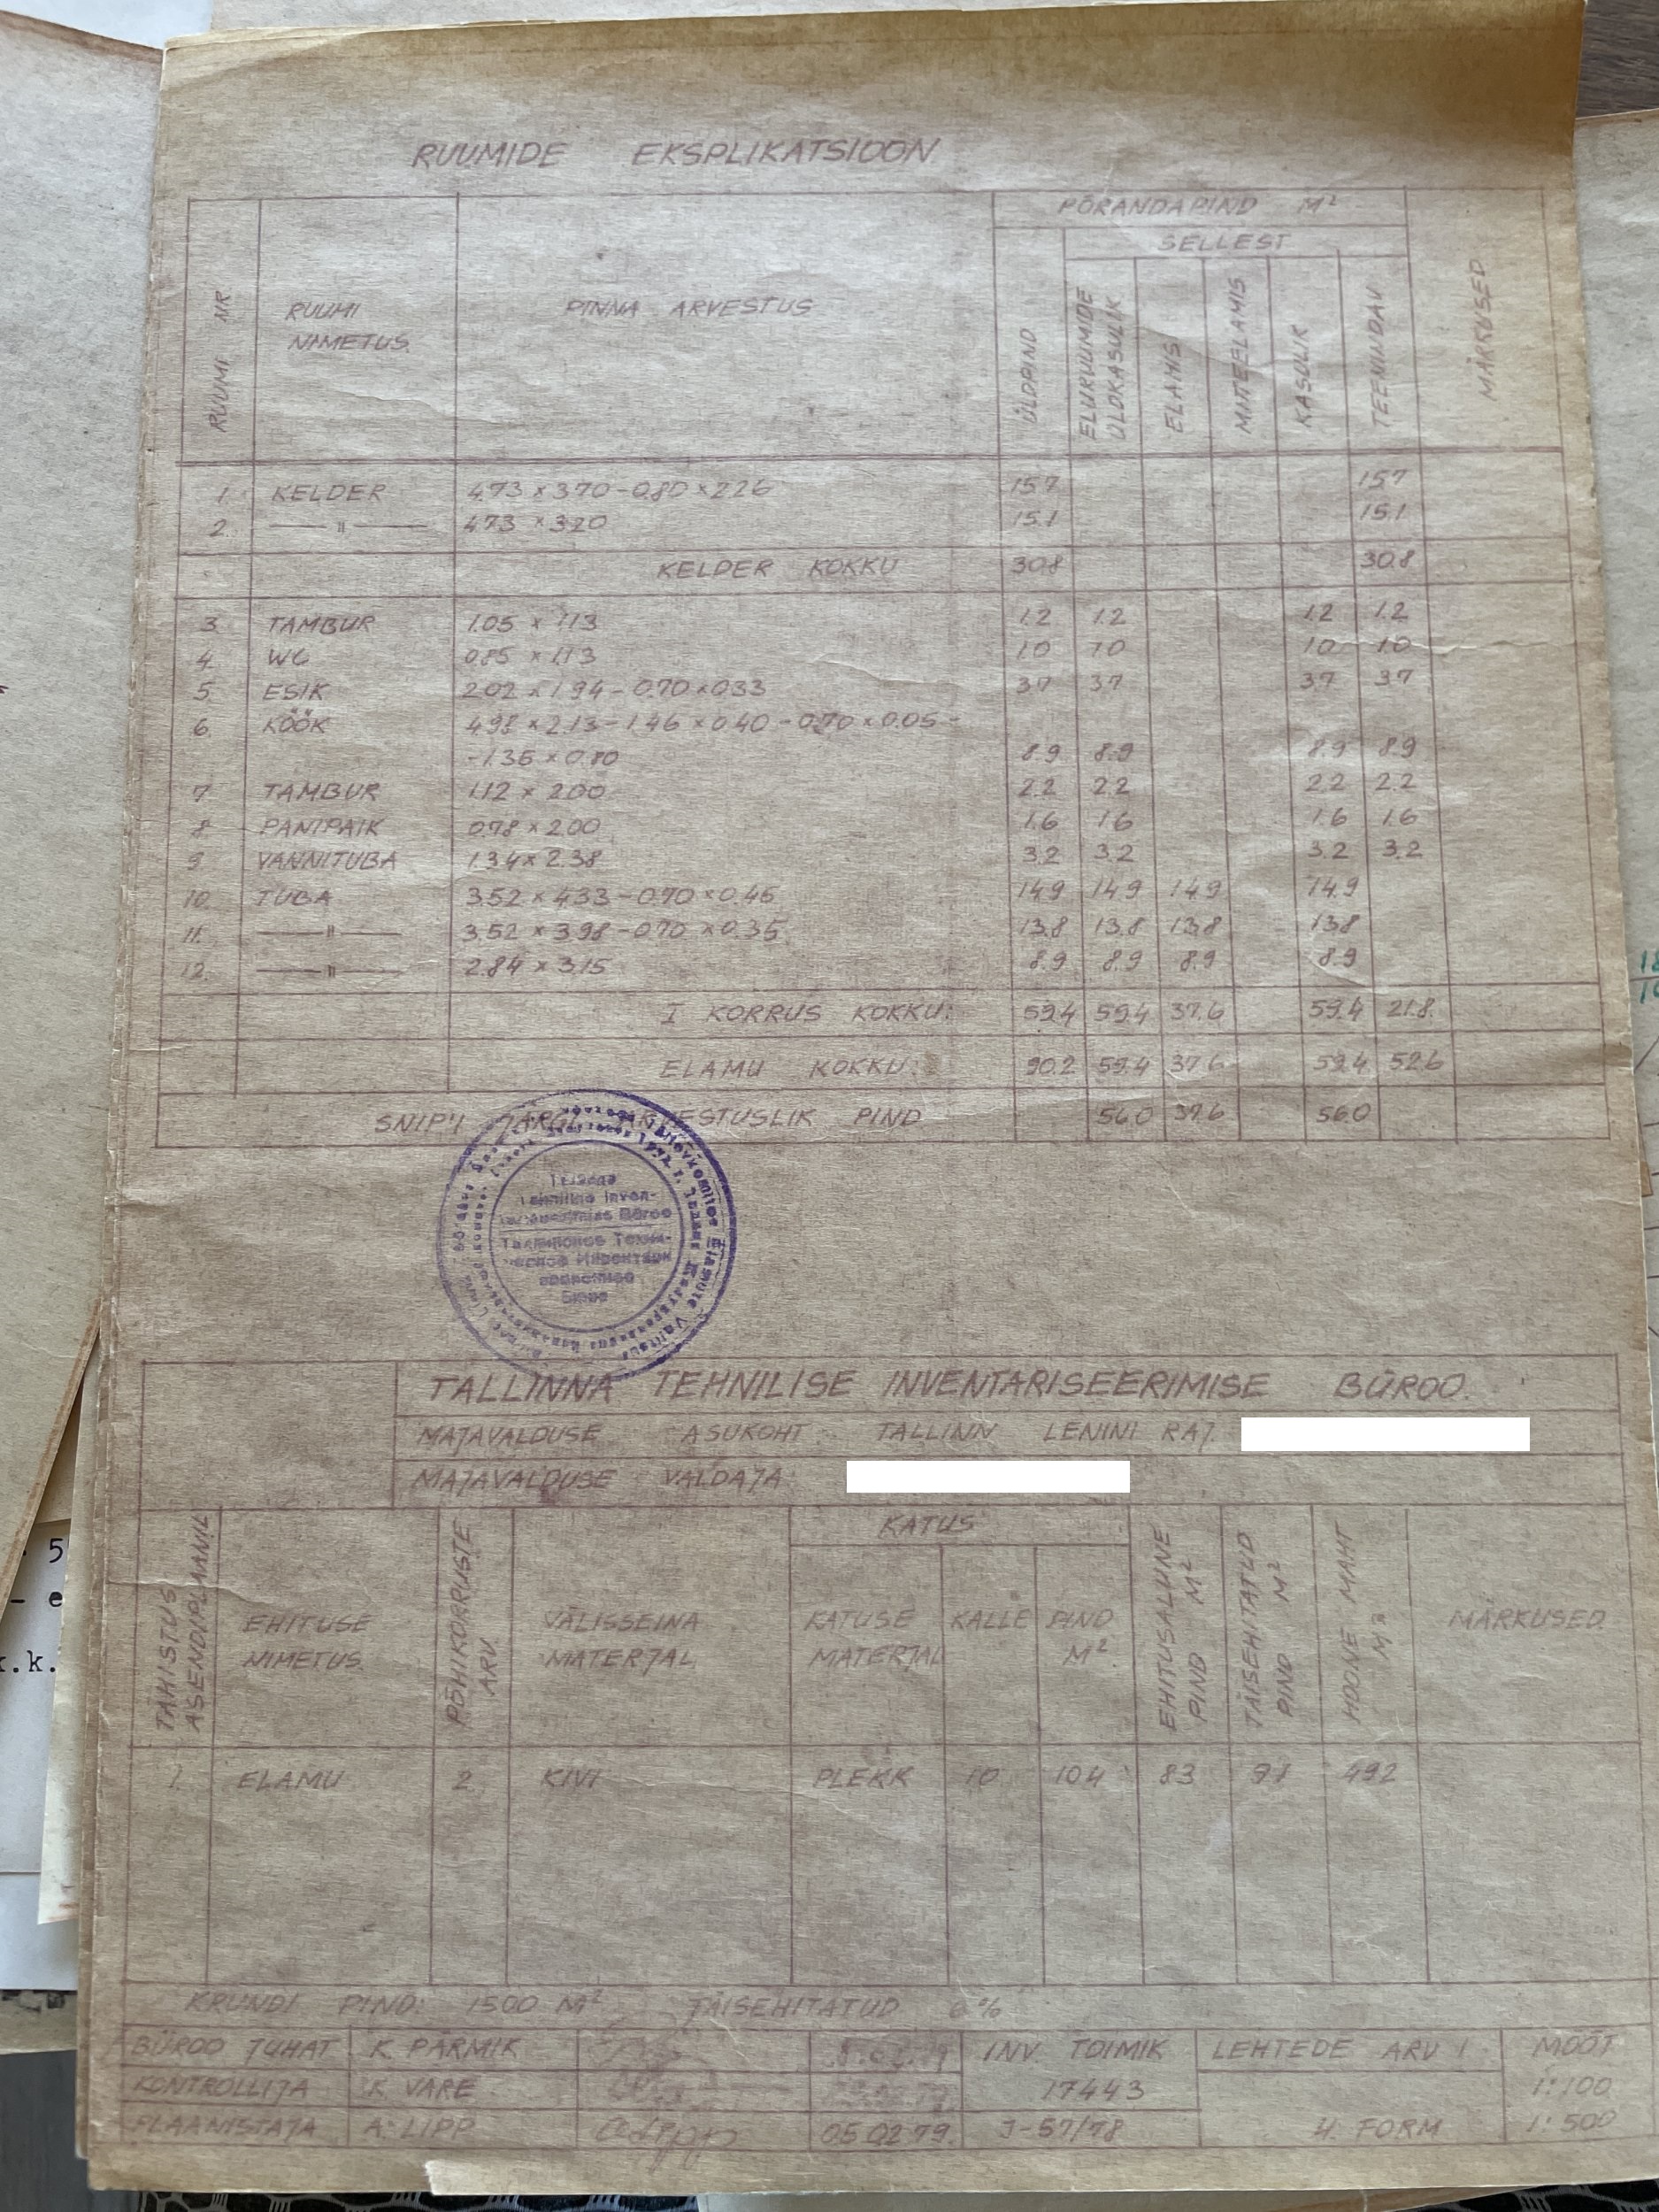 RUUMIDE EKSPLIKATSIOON
RUUMI NR.
RUUMI NIMETUS
PINNA ARVESTUS
PÕRANDAPIND M²
SELLEST
ÜLDPIND
ELURUUMIDE ÜLDKASULIK
ELAMIS
MITTEELAMIS
KASULIK
TEENINDAV
MÄRKUSED
1. KELDER 4.73 × 3.70 - 0.80 × 2.26 15.7 15.7
2. —"— 4.73 × 3.20 15.1 15.1
KELDER KOKKU 30.8 30.8
3. TAMBUR 1.05 × 1.13 1.2 1.2 1.2 1.2
4. WC 0.85 × 1.13 1.0 1.0 1.0 1.0
5. ESIK 2.02 × 1.94 - 0.70 × 0.33 3.7 3.7 3.7 3.7
6. KÖÖK 4.98 × 2.13 - 1.46 × 0.40 - 0.70 × 0.05 -
- 1.36 × 0.80 8.9 8.9 8.9 8.9
7. TAMBUR 1.12 × 2.00 2.2 2.2 2.2 2.2
8. PANIPAIK 0.78 × 2.00 1.6 1.6 1.6 1.6
9. VANNITUBA 1.34 × 2.38 3.2 3.2 3.2 3.2
10. TUBA 3.52 × 4.33 - 0.70 × 0.45 14.9 14.9 14.9 14.9
11. —"— 3.52 × 3.98 - 0.70 × 0.35 13.8 13.8 13.8 13.8
12. —"— 2.84 × 3.15 8.9 8.9 8.9 8.9
I KORRUS KOKKU: 59.4 59.4 37.6 59.4 21.8
ELAMU KOKKU: 90.2 59.4 37.6 59.4 52.6
SNIP'I JÄRGI ARVESTUSLIK PIND 56.0 37.6 56.0
Tehniline Inven-
Büroo
TALLINNA TEHNILISE INVENTARISEERIMISE BÜROO.
MAJAVALDUSE ASUKOHT: TALLINN LENINI RAJ.
MAJAVALDUSE VALDAJA:
TÄHISTUS ASENDIPLAANIL
EHITUSE NIMETUS
PÕHIKORRUSTE ARV
VÄLISSEINA MATERJAL
KATUS
KATUSE MATERJAL
KALLE
PIND M²
EHITUSALUNE PIND M²
TÄISEHITATUD PIND M²
HOONE MAHT M³
MÄRKUSED
1. ELAMU 2 KIVI PLEKK 10 104 83 91 492
KRUNDI PIND: 1500 M² TÄISEHITATUD 6%
BÜROO JUHAT K. PÄRMIK INV. TOIMIK LEHTEDE ARV 1 MÕÕT
KONTROLLIJA K. VARE 17443 1:100
PLAANISTAJA A. LIPP 05.02.79. J-57/78 4. FORM 1:500